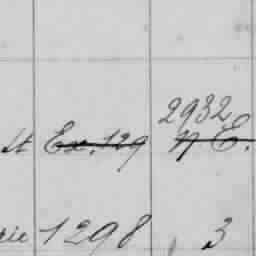 2932
st Ex. 129 N E.
rie 1298 3